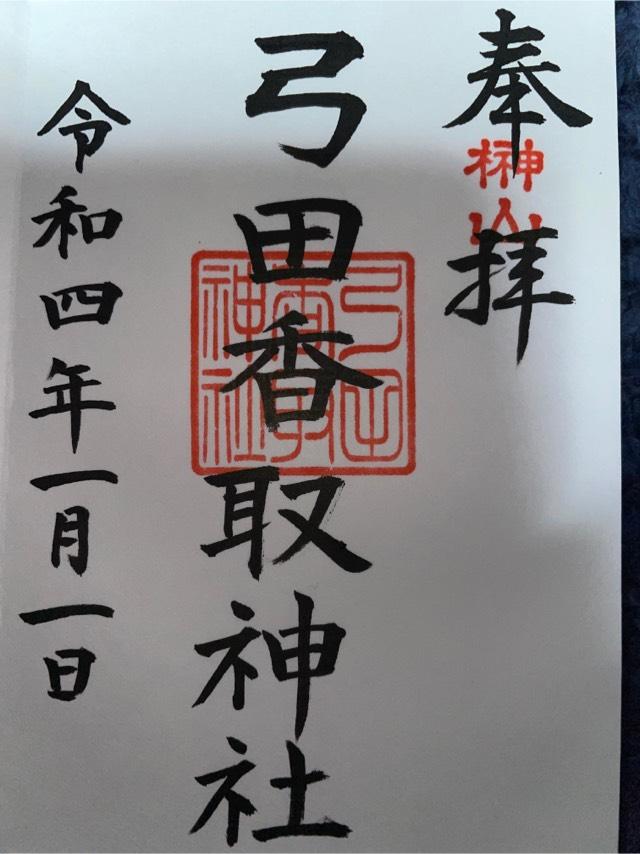 奉拝
榊山
弓田香取神社
弓田香取神社
令和四年一月一日